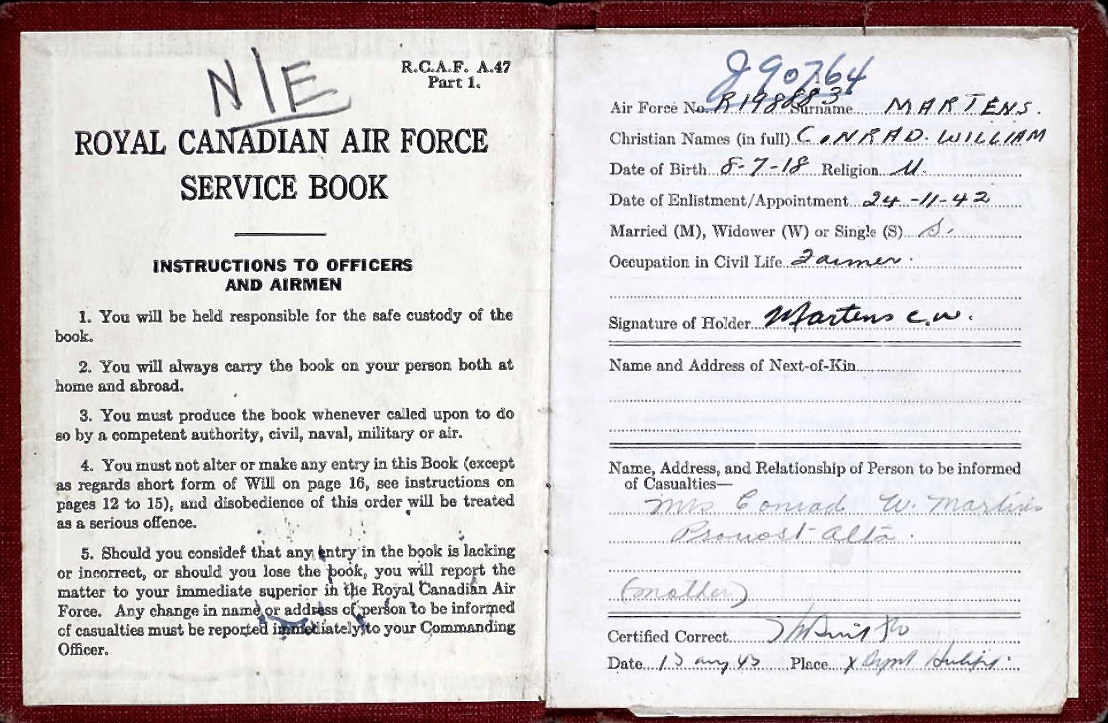 N/E
R.C.A.F. A.47
Part 1.
ROYAL CANADIAN AIR FORCE
SERVICE BOOK
INSTRUCTIONS TO OFFICERS
AND AIRMEN
1. You will be held responsible for the safe custody of the
book.
2. You will always carry the book on your person both at
home and abroad.
3. You must produce the book whenever called upon to do
so by a competent authority, civil, naval, military or air.
4. You must not alter or make any entry in this Book (except
as regards short form of Will on page 16, see instructions on
pages 12 to 15), and disobedience of this order will be treated
as a serious offence.
5. Should you consider that any entry in the book is lacking
or incorrect, or should you lose the book, you will report the
matter to your immediate superior in the Royal Canadian Air
Force. Any change in name or address of person to be informed
of casualties must be reported immediately to your Commanding
Officer.
J90764
Air Force No. R198883 Surname MARTENS.
Christian Names (in full) CONRAD. WILLIAM
Date of Birth 8-7-18 Religion U.
Date of Enlistment/Appointment 24-11-42
Married (M), Widower (W) or Single (S) S.
Occupation in Civil Life Farmer.
Signature of Holder Martens C.W.
Name and Address of Next-of-Kin
Name, Address, and Relationship of Person to be informed
of Casualties—
Mrs Conrad W. Martins
Provost Alta.
(mother)
Certified Correct
Date 13 Aug 43 Place